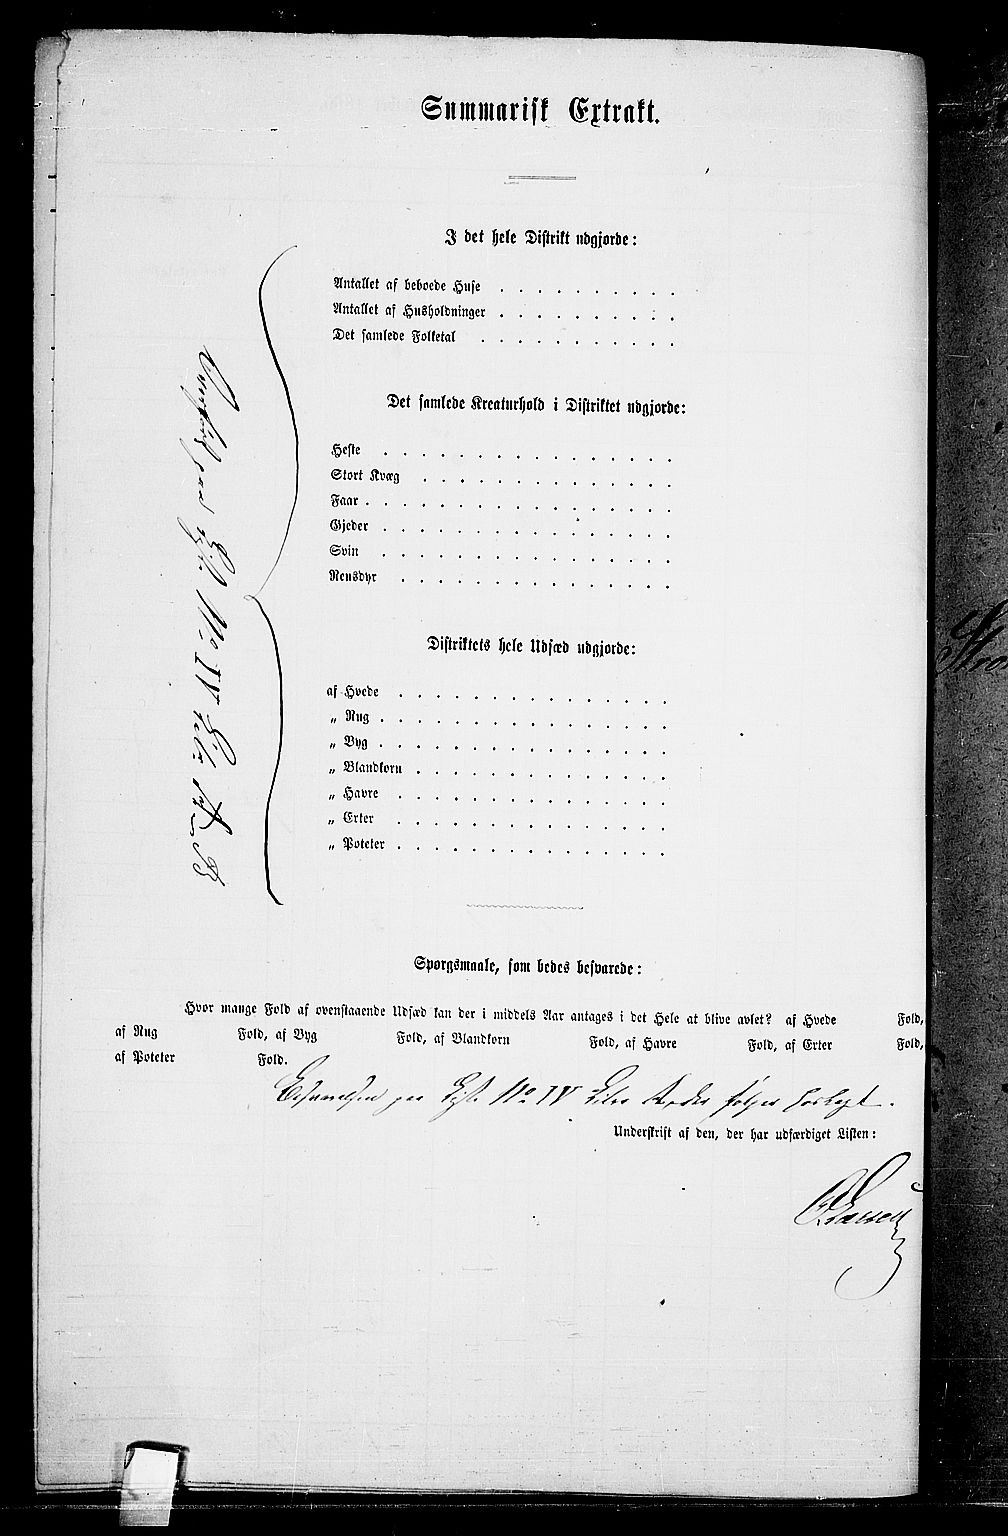 Summarisk Extrakt.
I det hele Distrikt udgjorde:
Antallet af beboede Huse . . . . . . . . . .
Antallet af Husholdninger . . . . . . . . . .
Det samlede Folketal . . . . . . . . . . .
Det samlede Kreaturhold i Distriktet udgjorde:
Heste . . . . . . . . . . . . . . . .
Stort Kvæg . . . . . . . . . . . . . .
Faar . . . . . . . . . . . . . . . . .
Gjeder . . . . . . . . . . . . . . . .
Svin . . . . . . . . . . . . . . . .
Rensdyr . . . . . . . . . . . . . . .
Distriktets hele Udsæd udgjorde:
af Hvede . . . . . . . . . . . . . . .
„ Rug . . . . . . . . . . . . . . . .
„ Byg . . . . . . . . . . . . . . . .
„ Blandkorn . . . . . . . . . . . . . .
„ Havre . . . . . . . . . . . . . . .
„ Erter . . . . . . . . . . . . . . .
„ Poteter . . . . . . . . . . . . . . .
No IV Litr A. B
Spørgsmaale, som bedes besvarede:
Hvor mange Fold af ovenstaaende Udsæd kan der i middels Aar antages i det Hele at blive avlet? af Hvede Fold,
af Rug Fold, af Byg Fold, af Blandkorn Fold, af Havre Fold, af Erter Fold,
af Poteter Fold.
Liste No IV Litra der følger
Underskrift af den, der har udfærdiget Listen: